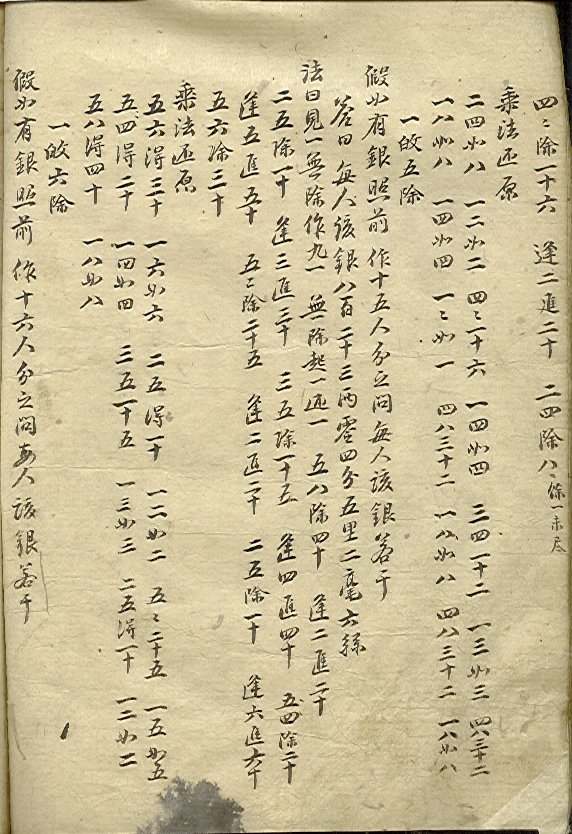 四〻除一十六 逢二進二十 二四除八〻餘一未尽
乘法还原
二四如八 一二如二 四〻一十六 一四如四 三四一十二 一三如三 四八三十二
一八如八 一四如四 一〻如一 四八三十二 一八如八 四八三十二 一八如八
一皈五除
假如有銀照前 作十五人分之問每人该銀若干
答曰 每人该銀八百二十三两零四分五里二毫六絲
法曰見一無除作九一 無除起一还一 五八除四十 逢二進二十
二五除一十 逢三進三十 三五除一十五 逢四進四十 五四除二十
逢五進五十 五〻除二十五 逢二進二十 二五除一十 逢六進六十
五六除三十
乘法还原
五六得三十 一六如六 二五得一十 一二如二 五〻二十五 一五如五
五四得二十 一四如四 三五一十五 一三如三 二五得一十 一二如二
五八得四十 一八如八
一皈六除
假如有銀照前 作十六人分之問每人该銀若干